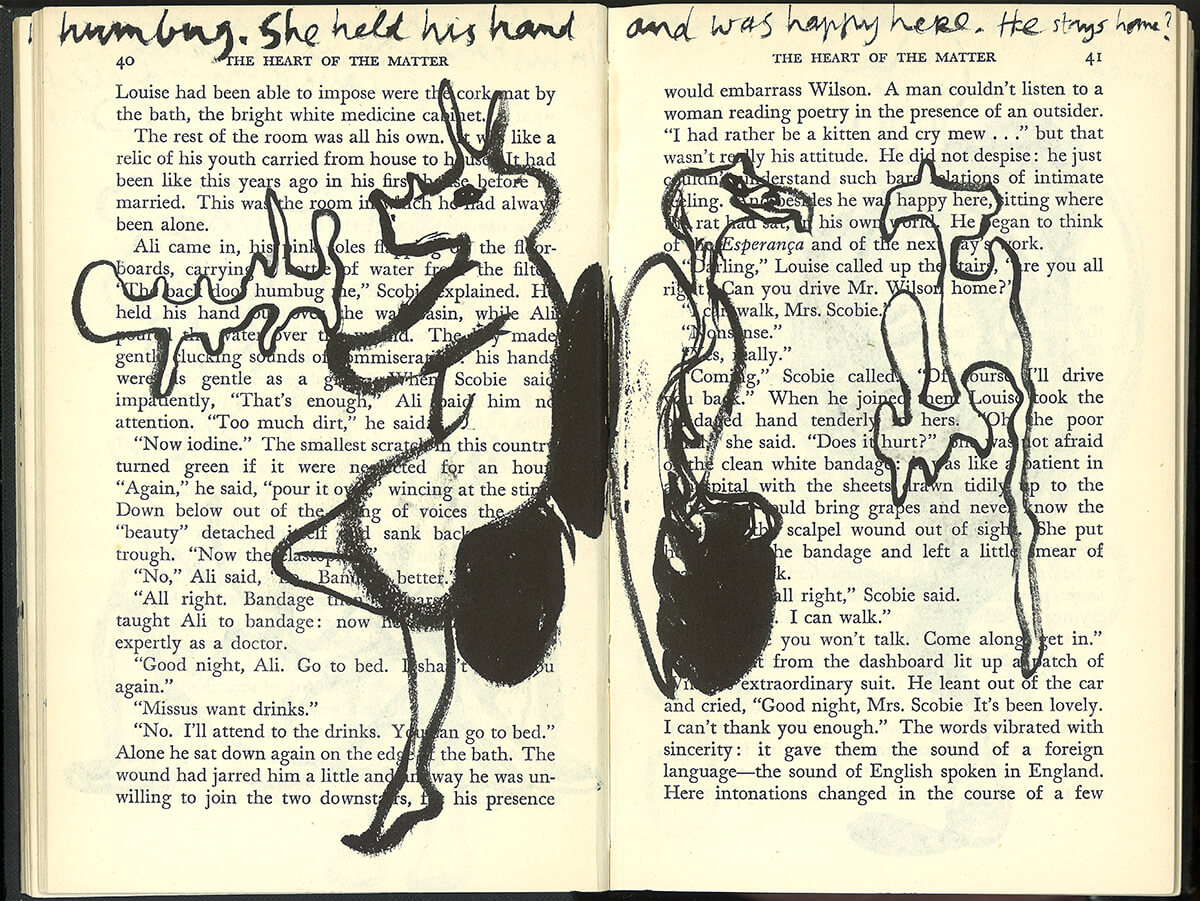 humbug. She held his hand
40 THE HEART OF THE MATTER
Louise had been able to impose were the cork mat by
the bath, the bright white medicine cabinet.
The rest of the room was all his own. It was like a
relic of his youth carried from house to house. It had
been like this years ago in his first house before
married. This was the room in which he had alway
been alone.
Ali came in, his pink soles flapping on the floor-
boards, carrying bottle of water from the filte
"The back door humbug me," Scobie explained. H
held his hand out over the wash basin, while Ali
poured the water over the wound. The boy made
gentle clucking sounds of commiseration: his hands
were as gentle as a When Scobie said
impatiently, "That's enough," Ali paid him no
attention. "Too much dirt," he said.
"Now iodine." The smallest scratch in this country
turned green if it were neglected for an hour
"Again," he said, "pour it over" wincing at the stin
Down below out of the swing of voices the
"beauty" detached itself and sank back
trough. "Now the elastop
"No," Ali said, Bandage better."
"All right. Bandage then
taught Ali to bandage: now he
expertly as a doctor.
"Good night, Ali. Go to bed. I shan't you
again."
"Missus want drinks."
"No. I'll attend to the drinks. You can go to bed."
Alone he sat down again on the edge of the bath. The
wound had jarred him a little and anyway he was un-
willing to join the two downstairs, for his presence
and was happy here. He stays home?
THE HEART OF THE MATTER 41
would embarrass Wilson. A man couldn't listen to a
woman reading poetry in the presence of an outsider.
"I had rather be a kitten and cry mew . . ." but that
wasn't really his attitude. He did not despise: he just
couldn't understand such bare relations of intimate
feeling. And besides he was happy here, sitting where
the rat had sat, in his own world. He began to think
of the Esperança and of the next day's work.
"Darling," Louise called up the stairs, "are you all
right? Can you drive Mr. Wilson home?"
"I can walk, Mrs. Scobie."
"Nonsense."
"Yes, really."
"Coming," Scobie called. "Of course I'll drive
you back." When he joined them Louise took the
bandaged hand tenderly in hers. "Oh the poor
hand," she said. "Does it hurt?" She was not afraid
of the clean white bandage: it was like a patient in
a hospital with the sheets drawn tidily up to the
could bring grapes and never know the
the scalpel wound out of sight. She put
her the bandage and left a little smear of
all right," Scobie said.
I can walk."
you won't talk. Come along, get in."
from the dashboard lit up a patch of
Wilson's extraordinary suit. He leant out of the car
and cried, "Good night, Mrs. Scobie It's been lovely.
I can't thank you enough." The words vibrated with
sincerity: it gave them the sound of a foreign
language—the sound of English spoken in England.
Here intonations changed in the course of a few